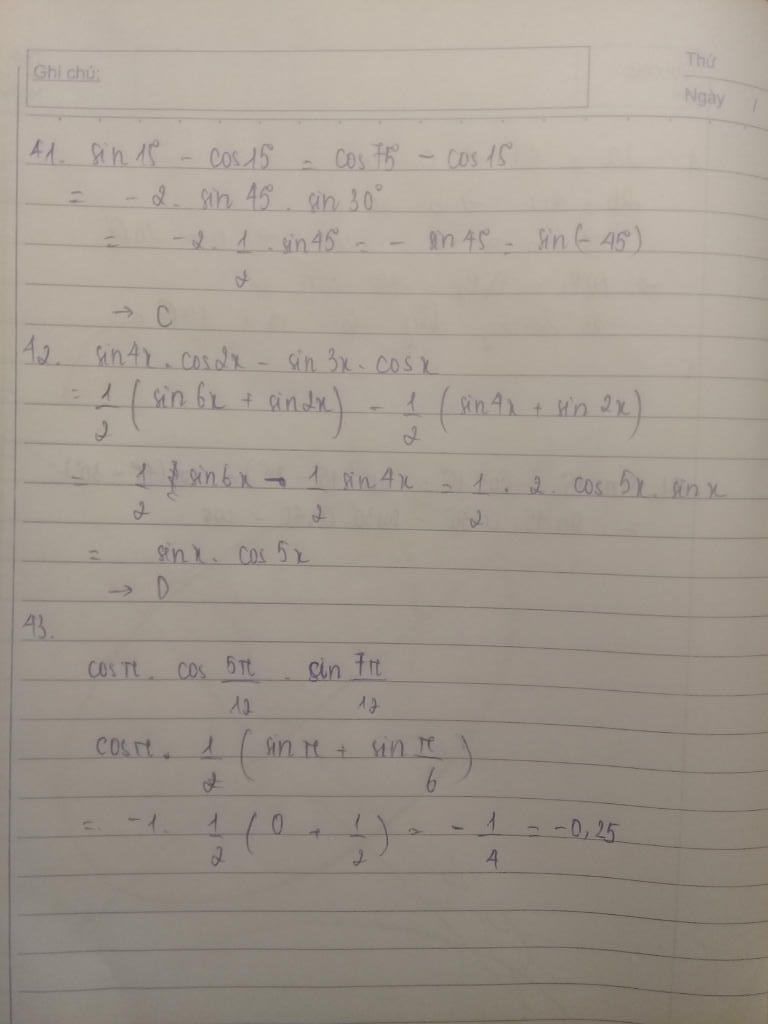 Ghi chú:
Thứ
Ngày /
41. sin 15° - cos 15° = cos 75° - cos 15°
= - 2. sin 45°. sin 30°
= -2. 1/2 . sin 45° = - sin 45° = sin(- 45°)
→ C
42. sin 4x . cos 2x - sin 3x . cos x
= 1/2 ( sin 6x + sin 2x ) - 1/2 ( sin 4x + sin 2x )
= 1/2 sin 6x - 1/2 sin 4x = 1/2 . 2 . cos 5x . sin x
= sin x . cos 5x
→ D
43.
cos π . cos 5π/12 . sin 7π/12
cos π . 1/2 ( sin π + sin π/6 )
= -1. 1/2 ( 0 + 1/2 ) = - 1/4 = -0,25